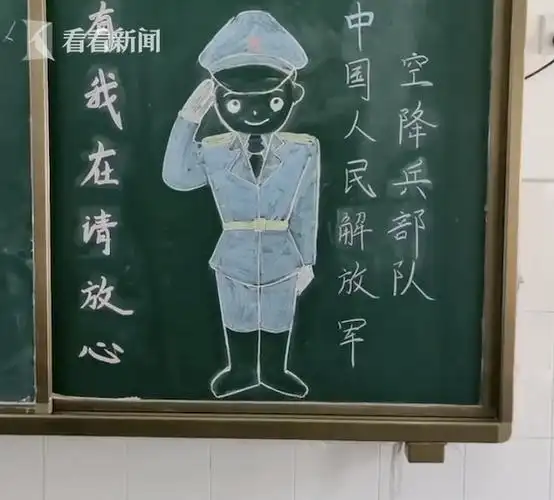 看看新闻
中国人民解放军
空降兵部队
有我在请放心